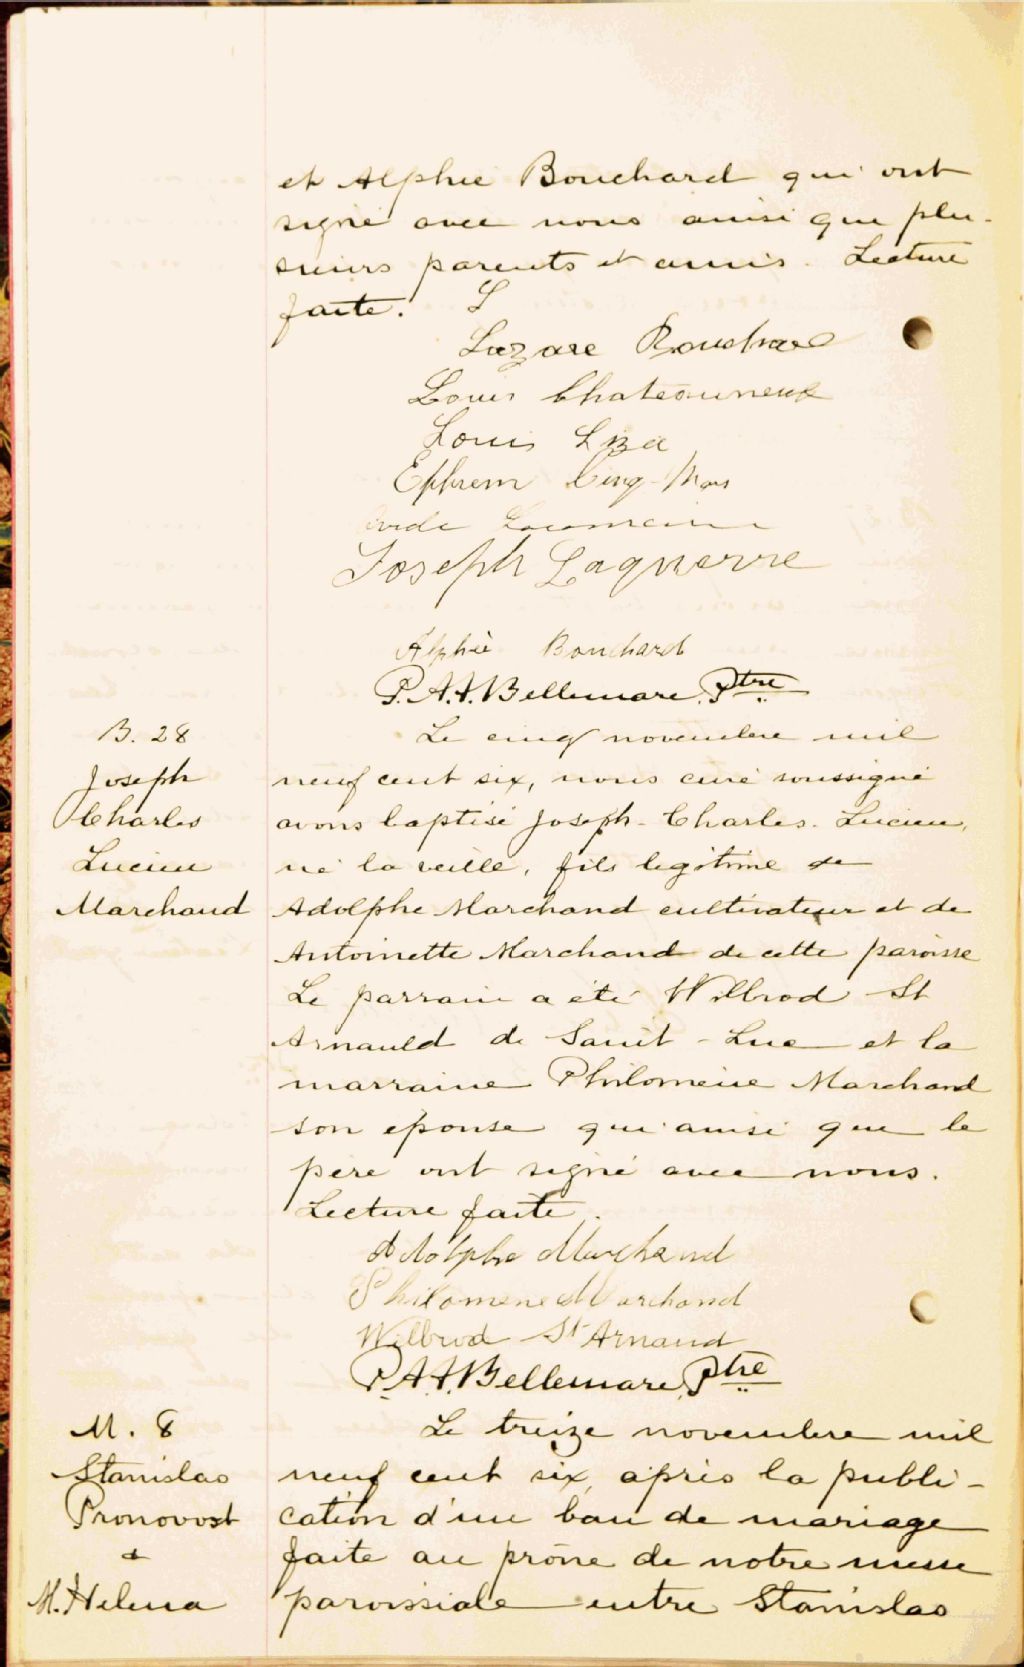 et Alphée Bouchard qui ont
signé avec nous ainsi que plu-
sieurs parents et amis. Lecture
faite.
Lazare Bouchard
Louis Chateauneuf
Louis
Ephrem Cinq-Mars
Joseph Laquerre
Alphée Bouchard
P.A.A. Bellemare, Ptre
B. 28
Joseph
Charles
Lucien
Marchand
Le cinq novembre mil
neuf cent six, nous curé soussigné
avons baptisé Joseph-Charles-Lucien,
né la veille, fils legitime de
Adolphe Marchand cultivateur et de
Antoinette Marchand de cette paroisse
Le parrain a été Wilbrod St
Arnauld de Saint-Luc et la
marraine Philomène Marchand
son épouse qui ainsi que le
père ont signé avec nous.
Lecture faite.
Adolphe Marchand
Philomene Marchand
Wilbrod St Arnaud
P.A.A. Bellemare, Ptre
M. 8
Stanislas
Pronovost
&
M. Helena
Le treize novembre mil
neuf cent six, après la publi-
cation d'un ban de mariage
faite au prône de notre messe
paroissiale entre Stanislas